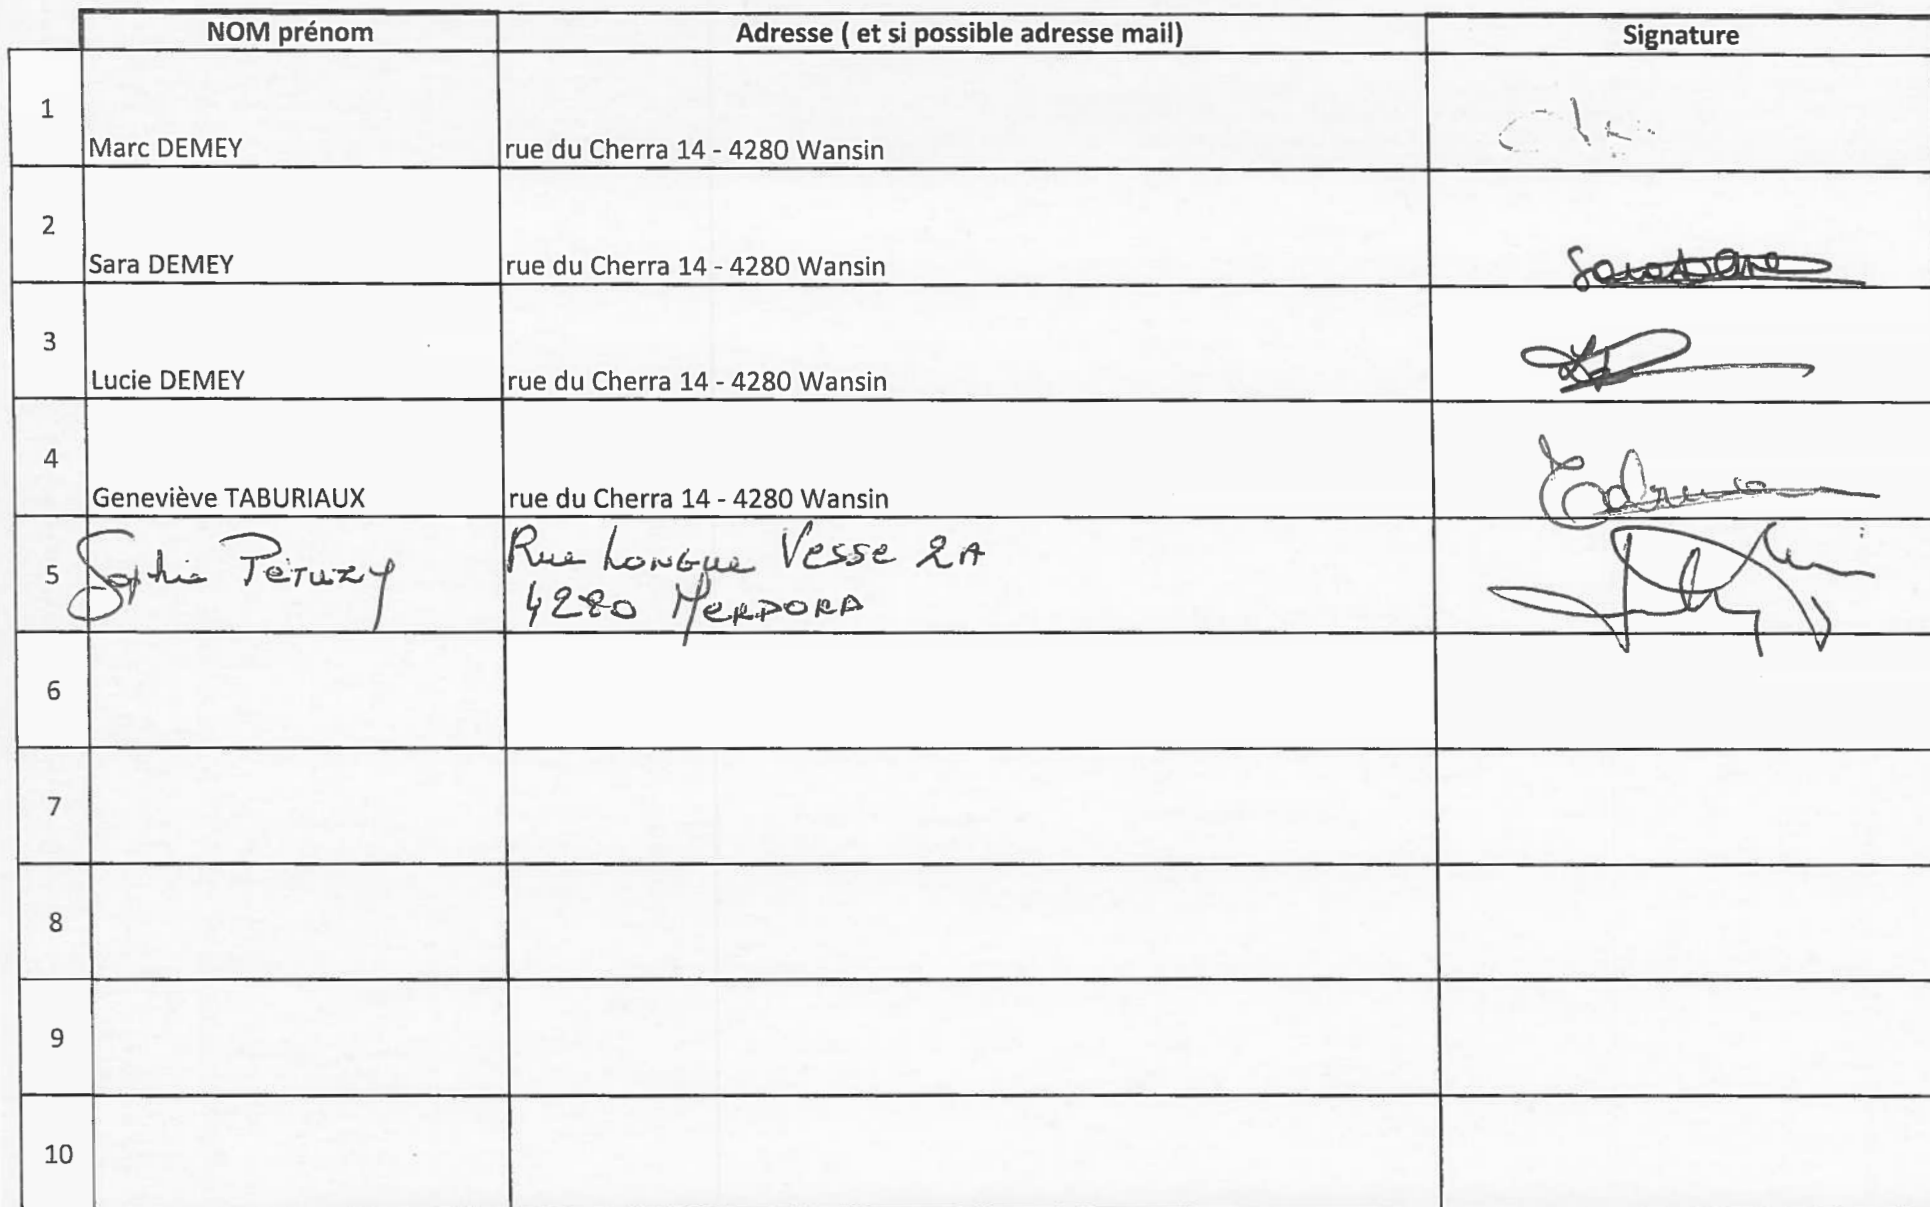 NOM prénom Adresse ( et si possible adresse mail) Signature
1
Marc DEMEY rue du Cherra 14 - 4280 Wansin
2
Sara DEMEY rue du Cherra 14 - 4280 Wansin
3
Lucie DEMEY rue du Cherra 14 - 4280 Wansin
4
Geneviève TABURIAUX rue du Cherra 14 - 4280 Wansin
5 Sophie Rue Longue Vesse 2A
4280 MERDORP
6
7
8
9
10